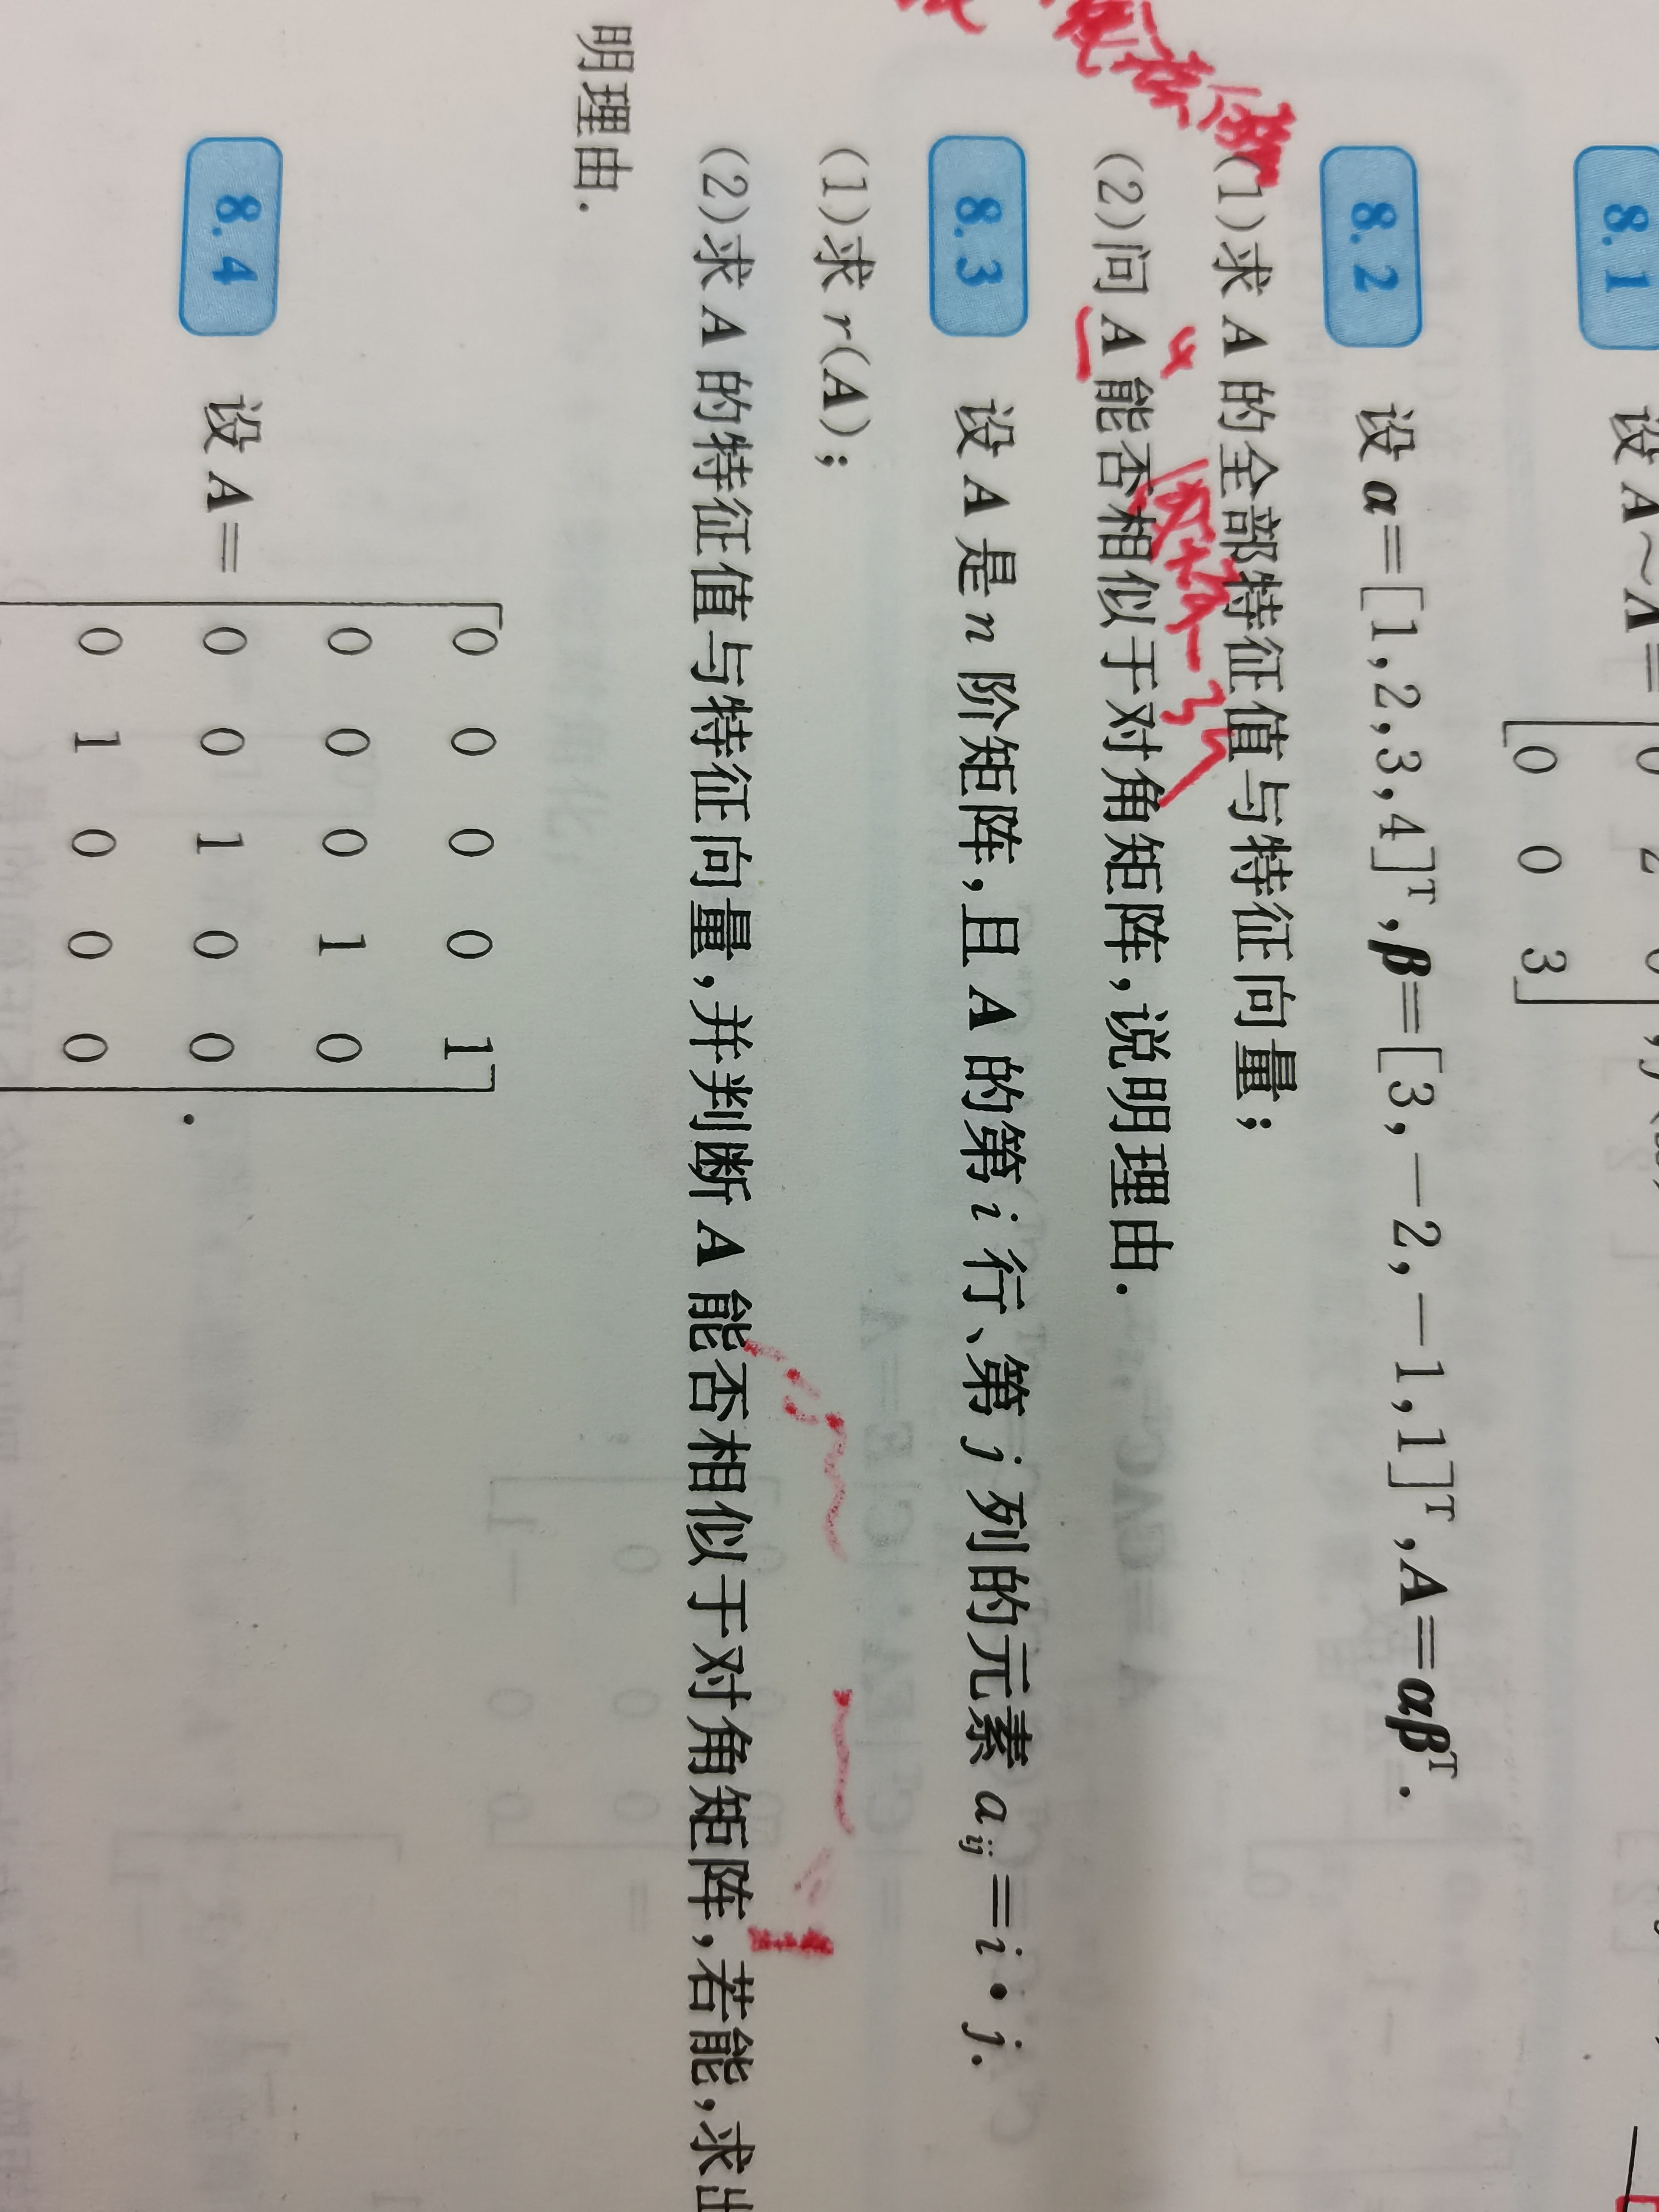 8.1 设 A～Λ=
0 0 3
8.2 设 α=[1,2,3,4]ᵀ,β=[3,-2,-1,1]ᵀ,A=αβᵀ.
(1)求 A 的全部特征值与特征向量;
(2)问 A 能否相似于对角矩阵,说明理由.
8.3 设 A 是 n 阶矩阵,且 A 的第 i 行、第 j 列的元素 aᵢⱼ=i·j.
(1)求 r(A);
(2)求 A 的特征值与特征向量,并判断 A 能否相似于对角矩阵,若能,求出
明理由.
0 0 0 0 1
0 0 0 1 0
8.4 设 A= 0 0 1 0 0 .
0 1 0 0 0